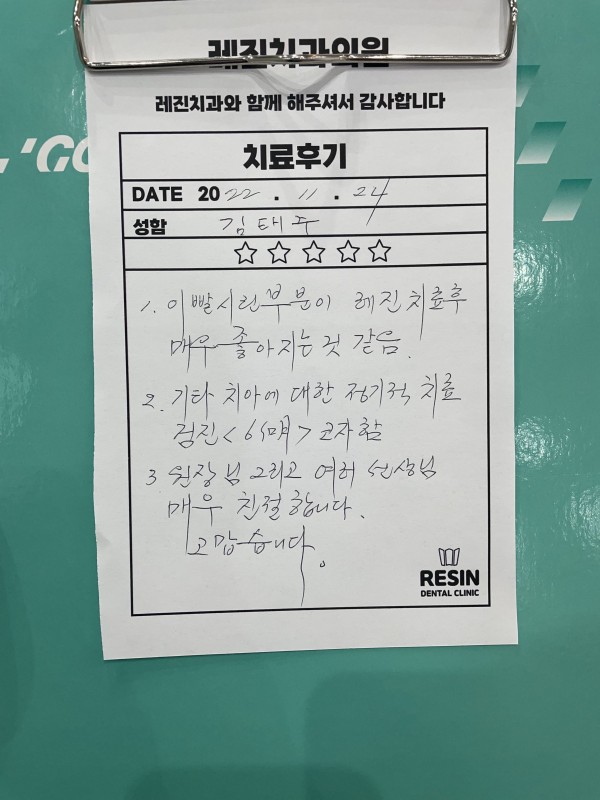 레진치과의원
레진치과와 함께 해주셔서 감사합니다
치료후기
DATE 2022 . 11 . 24
성함 김태주
1. 이빨시린부분이 레진치료후
매우 좋아지는것 같음.
2. 기타 치아에 대한 정기적 치료
검진< 6개月 >코자함
3 원장님 그리고 여러 선생님
매우 친절합니다.
고맙습니다.
RESIN
DENTAL CLINIC